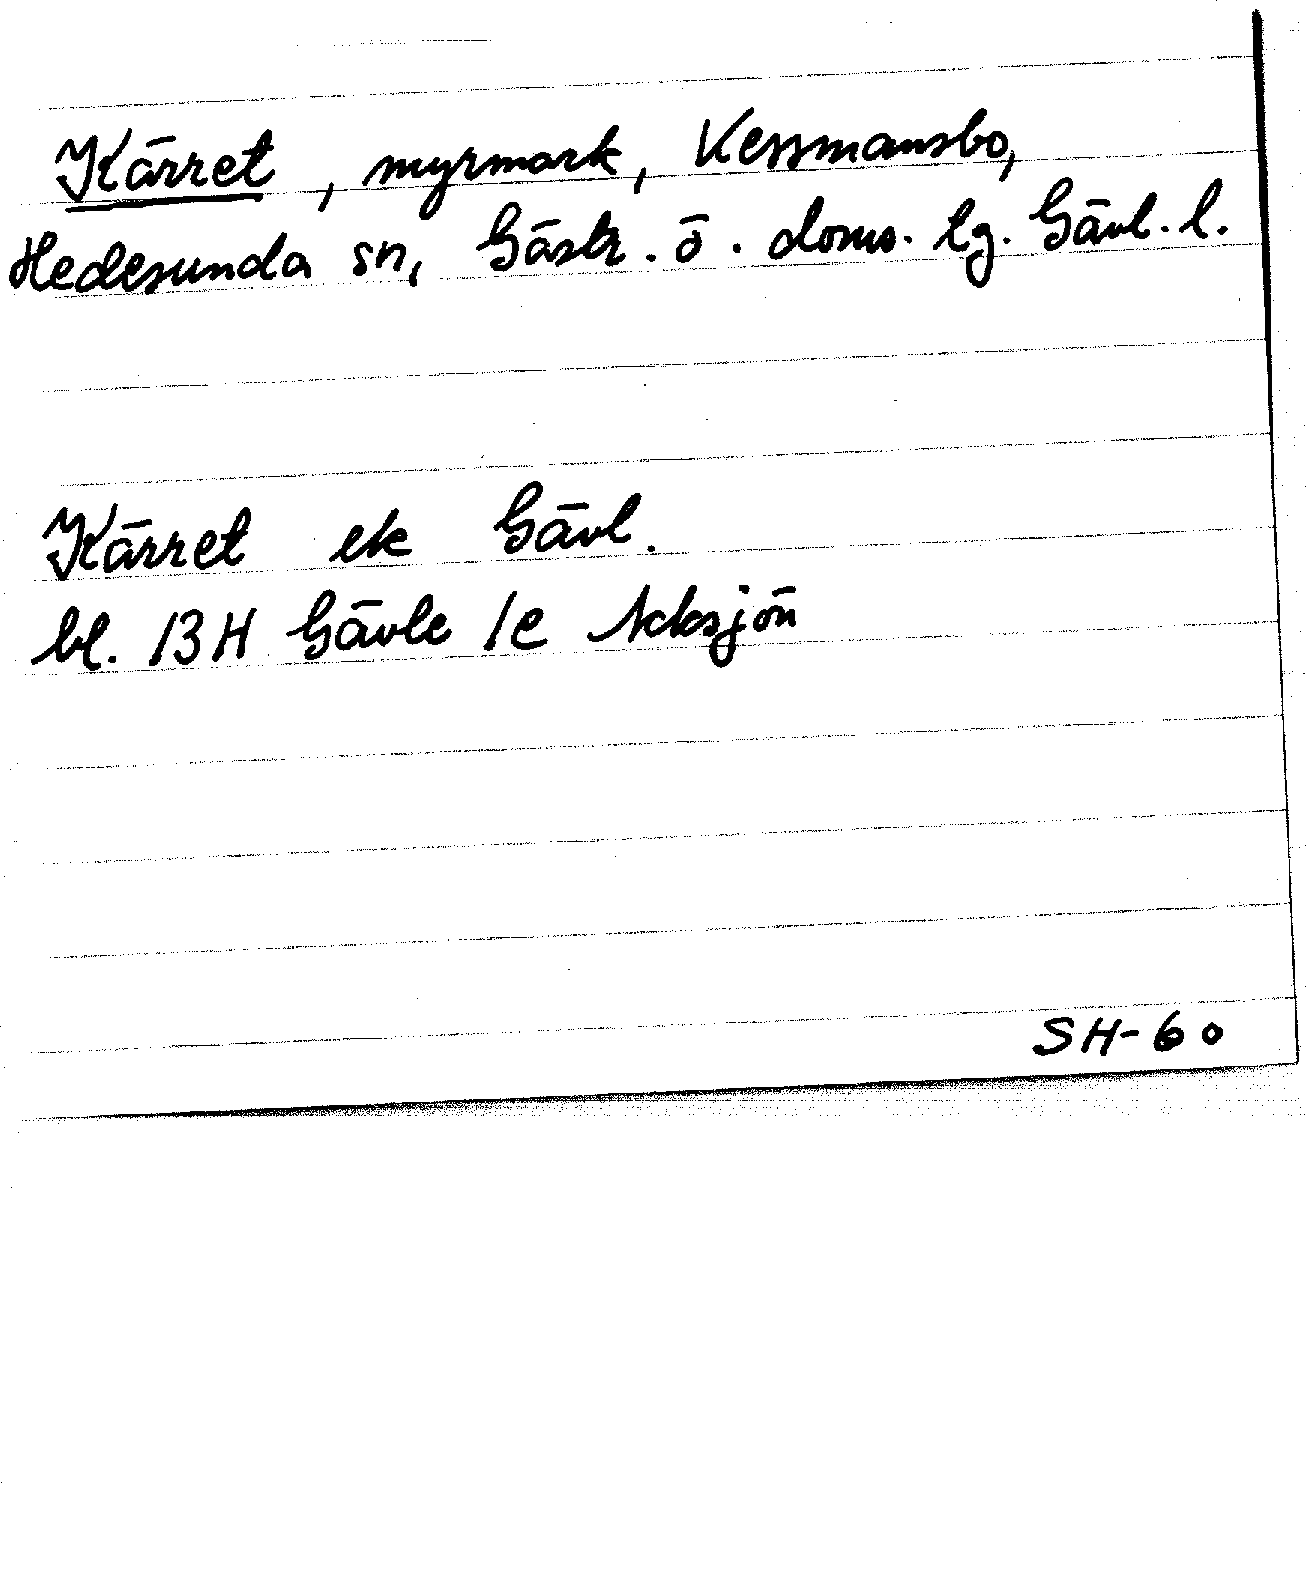 Kärret, myrmark, Kessmansbo,
Hedesunda sn, Gästr. ö. doms. tg. Gävl. l.
Kärret ek Gävl.
bl. 13H Gävle 1e Acksjön
SH-60